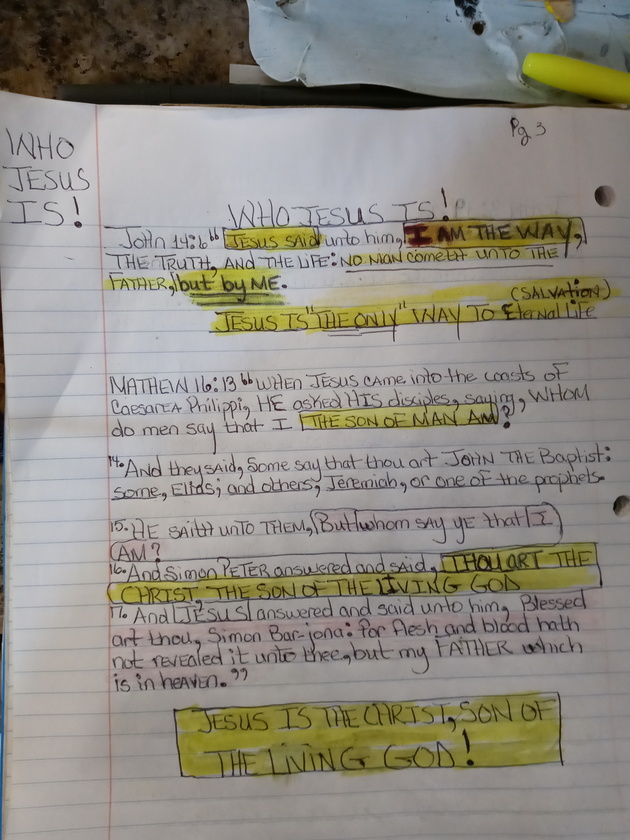 Pg 3
WHO
JESUS
IS!
WHO JESUS IS!
John 14:6 "JESUS SAID unto him, I AM THE WAY,
THE TRUTH, AND THE LIFE: NO MAN cometh UNTO THE
FATHER, but by ME.
(SALVATION)
JESUS IS "THE ONLY" WAY TO Eternal Life
MATHEW 16:13 "WHEN JESUS CAME into the coasts of
CaesareA Philippi, HE asked HIS disciples, saying, WHOM
do men say that I THE SON OF MAN AM?
14. And they said, Some say that thou art JOHN THE Baptist:
some, Elias; and others, Jeremiah, or one of the prophets.
15. HE saith unto THEM, But whom say ye that I
AM?
16. And Simon PETER answered and said, THOU ART THE
CHRIST, THE SON OF THE LIVING GOD
17. And JESUS answered and said unto him, Blessed
art thou, Simon Bar-jona: for flesh and blood hath
not revealed it unto thee, but my FATHER which
is in heaven."
JESUS IS THE CHRIST, SON OF
THE LIVING GOD!